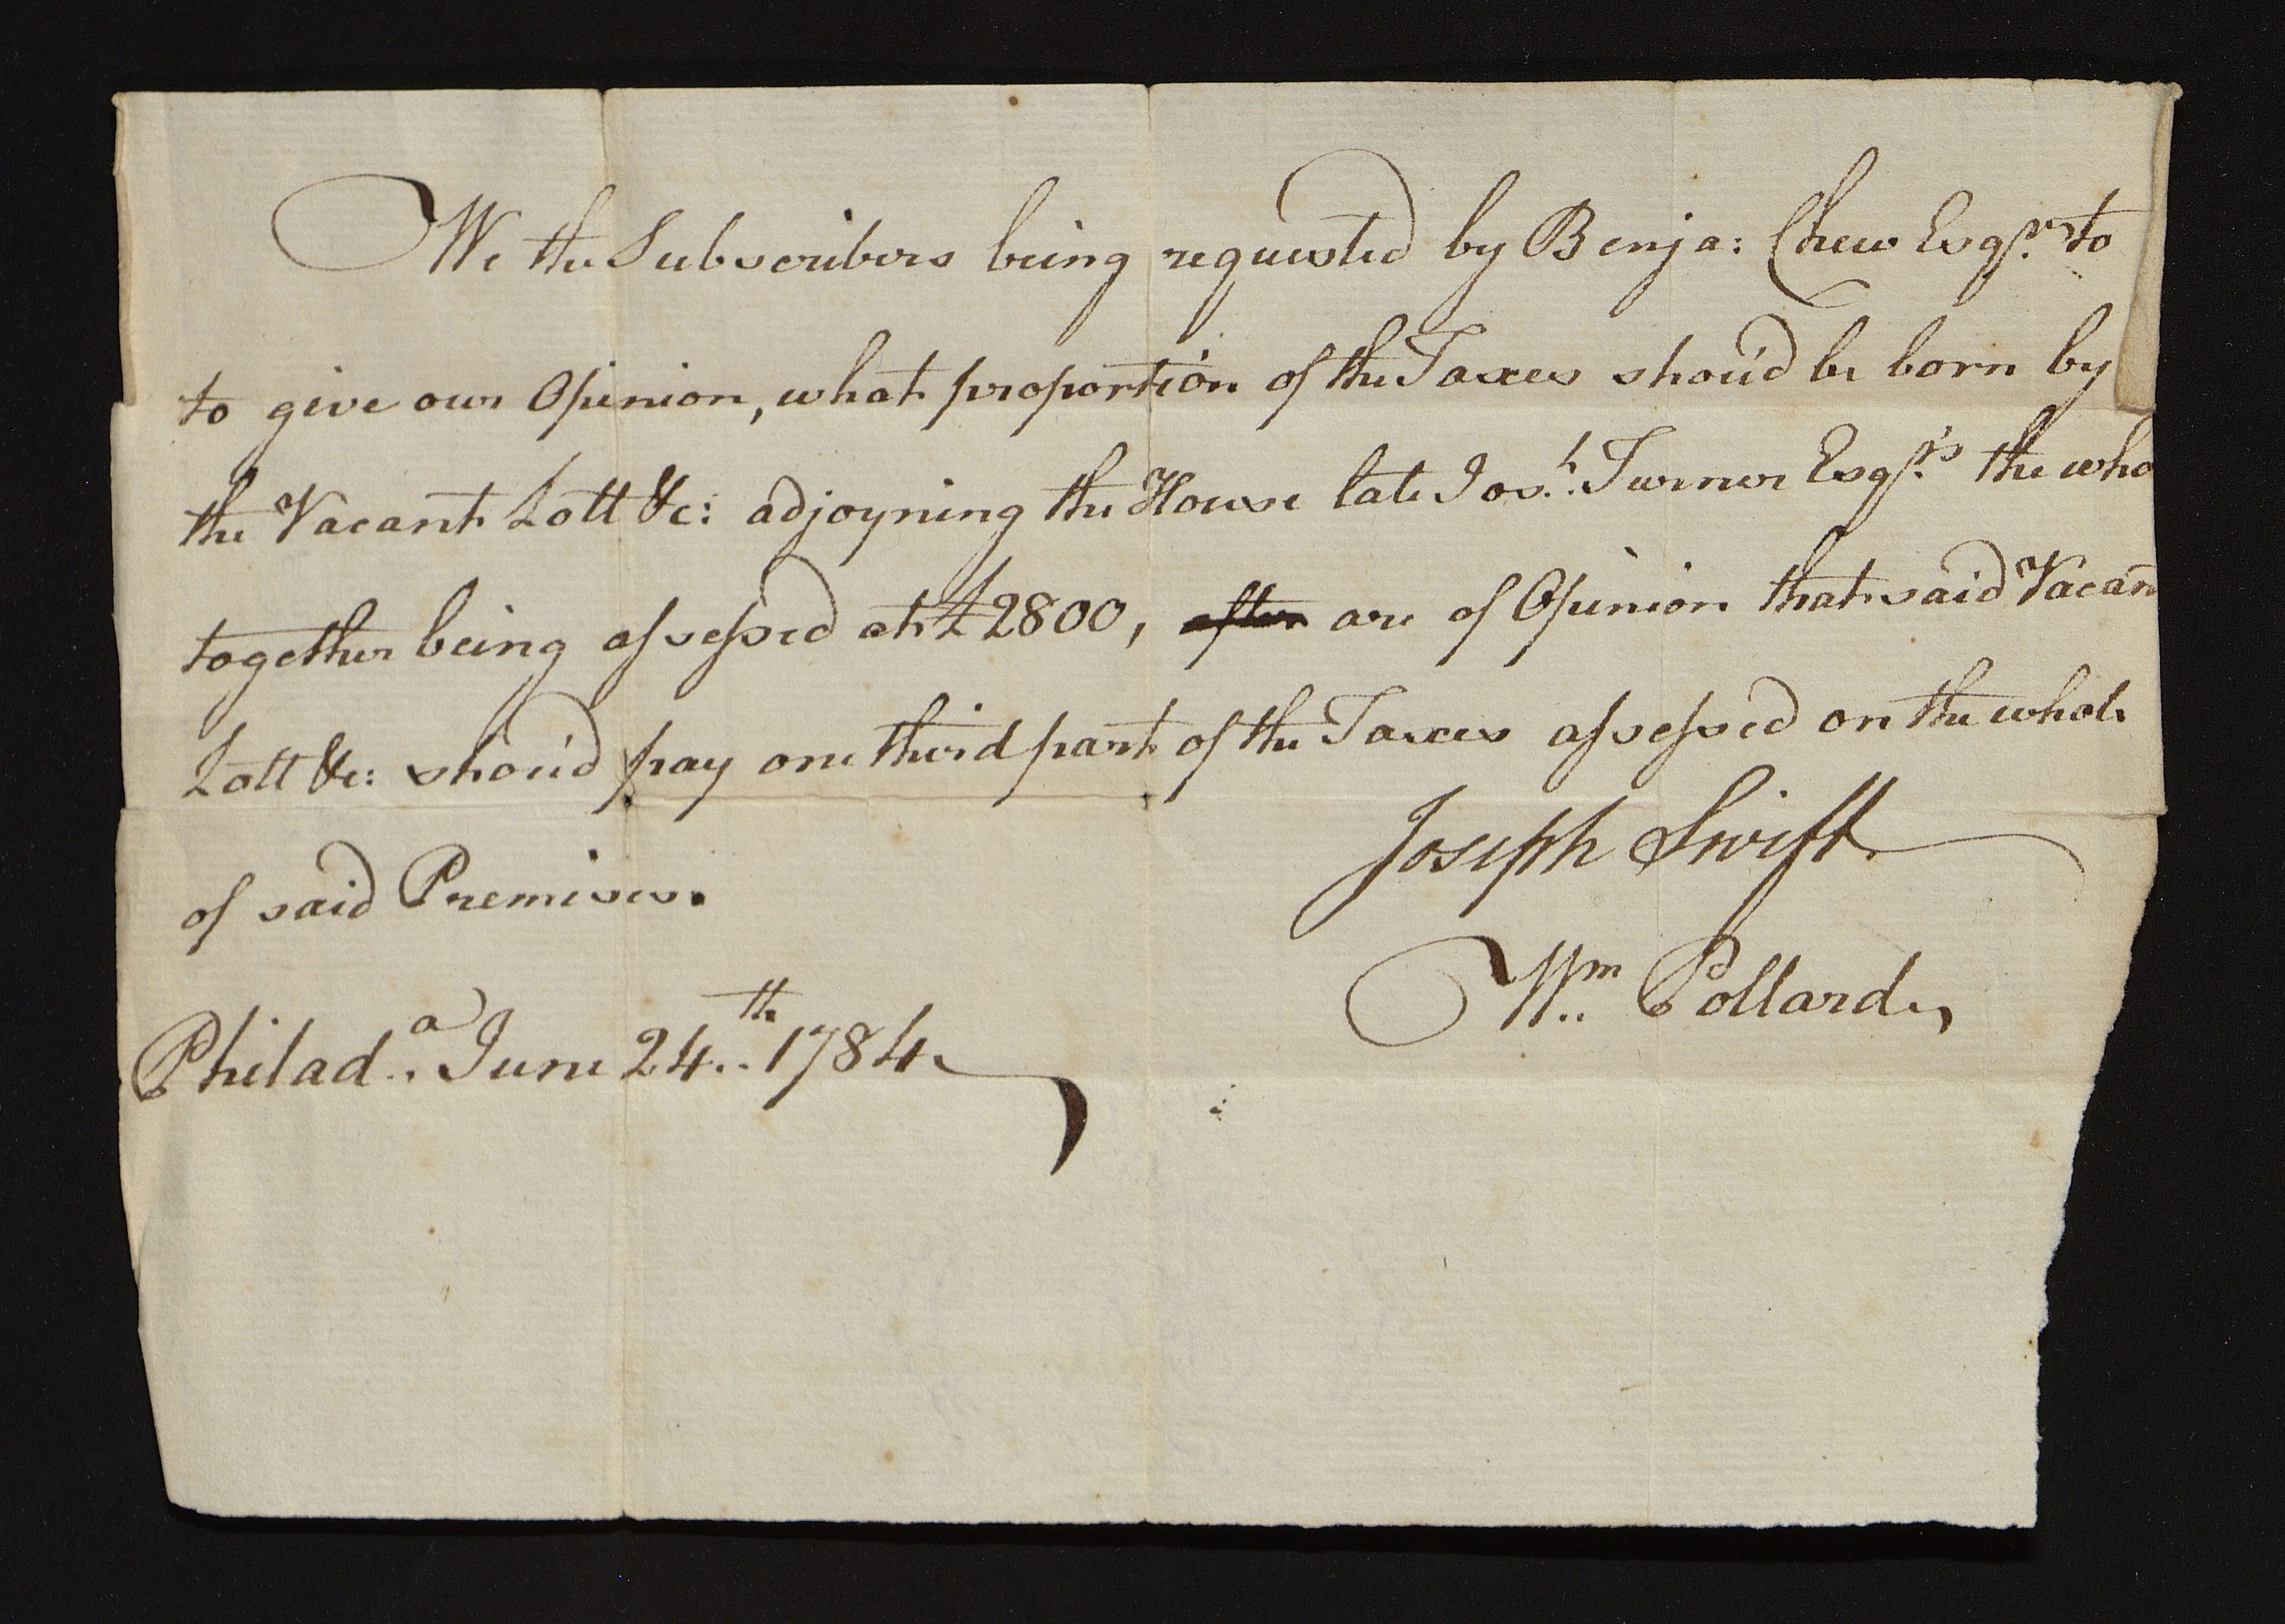 We the Subscribers being requested by Benja: Chew Esqr. to
to give our Opinion, what proportion of the Taxes shou'd be born by
the Vacant Lott &c: adjoyning the House late Josh. Turner Esqr's the who
together being assessed at £2800, after are of Opinion that said Vacan
Lott &c: shou'd pay one third part of the Taxes assessed on the whole
of said Premises.
Joseph Swift
Wm. Pollard,
Philada. June 24th. 1784